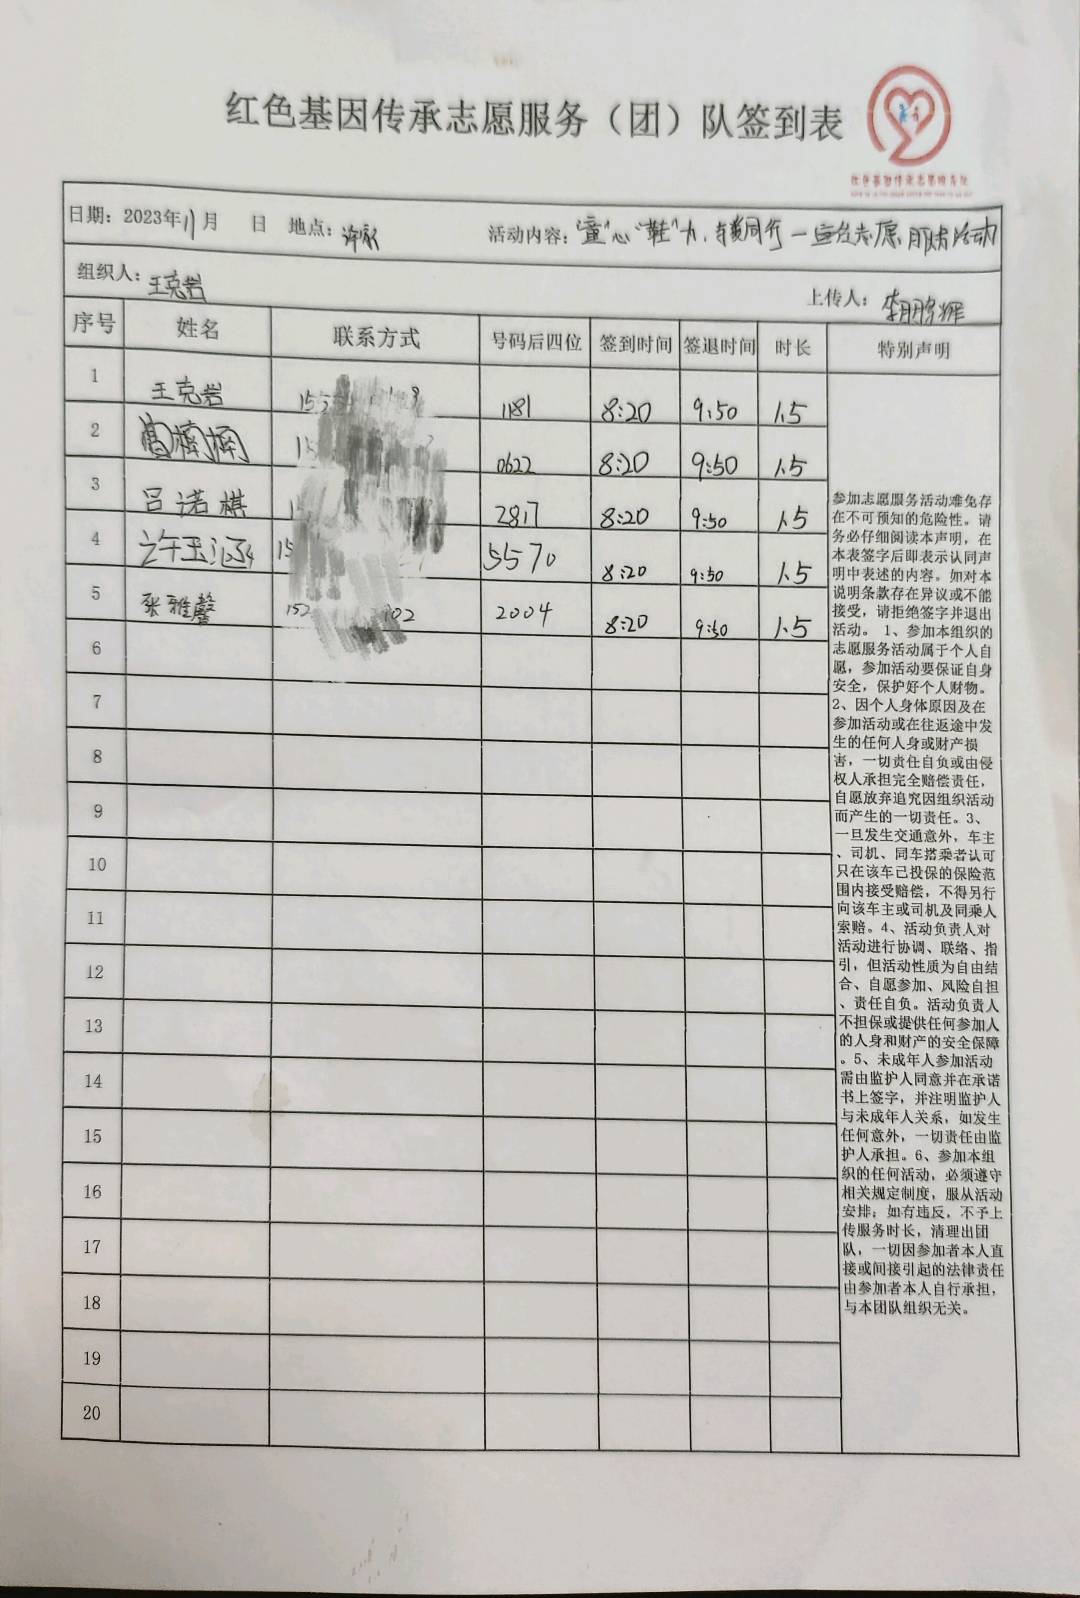 红色基因传承志愿服务（团）队签到表
红色基因传承志愿服务队
日期：2023年11月 日 地点：许家 活动内容："童"心"鞋"力，与爱同行—益公志愿服务活动
组织人：王克岩 上传人：李鹏辉
序号 姓名 联系方式 号码后四位 签到时间 签退时间 时长 特别声明
1 王克岩 1181 8:20 9:50 1.5
2 高楠楠 0622 8:20 9:50 1.5
3 吕诺棋 2817 8:20 9:50 1.5
4 许玉涵 5570 8:20 9:50 1.5
5 张雅馨 152 2004 8:20 9:50 1.5
6
7
8
9
10
11
12
13
14
15
16
17
18
19
20
参加志愿服务活动难免存
在不可预知的危险性。请
务必仔细阅读本声明，在
本表签字后即表示认同声
明中表述的内容。如对本
说明条款存在异议或不能
接受，请拒绝签字并退出
活动。 1、参加本组织的
志愿服务活动属于个人自
愿，参加活动要保证自身
安全，保护好个人财物。
2、因个人身体原因及在
参加活动或在往返途中发
生的任何人身或财产损
害，一切责任自负或由侵
权人承担完全赔偿责任，
自愿放弃追究因组织活动
而产生的一切责任。3、
一旦发生交通意外，车主
、司机、同车搭乘者认可
只在该车已投保的保险范
围内接受赔偿，不得另行
向该车主或司机及同乘人
索赔。4、活动负责人对
活动进行协调、联络、指
引，但活动性质为自由结
合、自愿参加、风险自担
、责任自负。活动负责人
不担保或提供任何参加人
的人身和财产的安全保障
。5、未成年人参加活动
需由监护人同意并在承诺
书上签字，并注明监护人
与未成年人关系，如发生
任何意外，一切责任由监
护人承担。6、参加本组
织的任何活动，必须遵守
相关规定制度，服从活动
安排；如有违反，不予上
传服务时长，清理出团
队，一切因参加者本人直
接或间接引起的法律责任
由参加者本人自行承担，
与本团队组织无关。